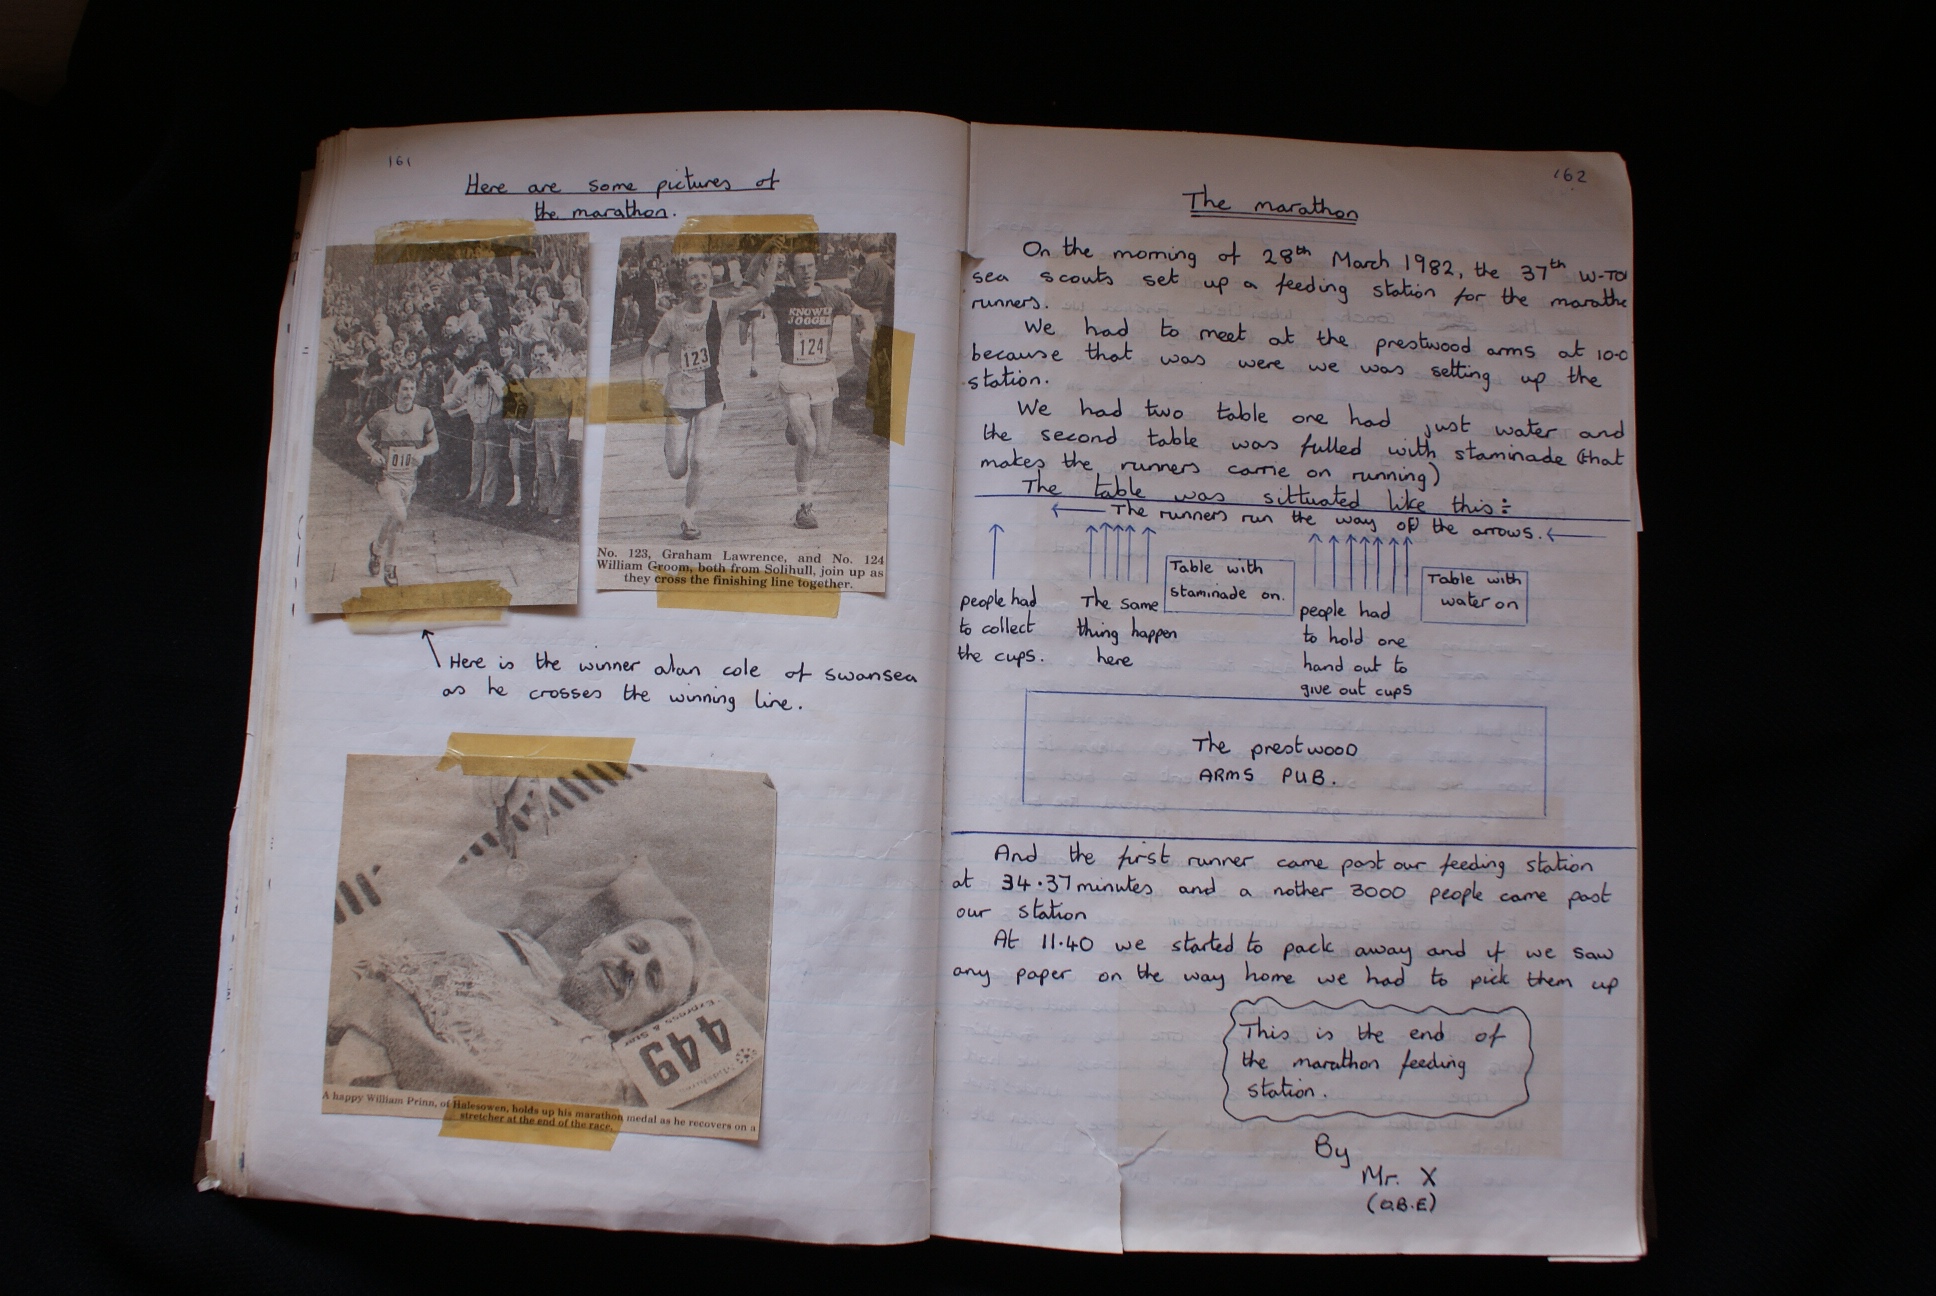 161
Here are some pictures of
the marathon.
010
123
KNOWLE
JOGGE
124
No. 123, Graham Lawrence, and No. 124
William Groom, both from Solihull, join up as
they cross the finishing line together.
Here is the winner alan cole of swansea
as he crosses the winning line.
449
Express & Star
A happy William Prinn, of Halesowen, holds up his marathon medal as he recovers on a
stretcher at the end of the race.
162
The marathon
On the morning of 28th March 1982, the 37th W-TO
sea scouts set up a feeding station for the marathe
runners.
We had to meet at the prestwood arms at 10-0
because that was were we was setting up the
station.
We had two table one had just water and
the second table was fulled with staminade (that
makes the runners carrie on running)
The table was sittuated like this:
The runners run the way of the arrows.
people had
to collect
the cups.
The same
thing happen
here
Table with
staminade on.
people had
to hold one
hand out to
give out cups
Table with
water on
The prestwood
ARMS PUB.
And the first runner came past our feeding station
at 34.37 minutes and a nother 3000 people came past
our station
At 11.40 we started to pack away and if we saw
any paper on the way home we had to pick them up
This is the end of
the marathon feeding
station.
By
Mr. X
(O.B.E)